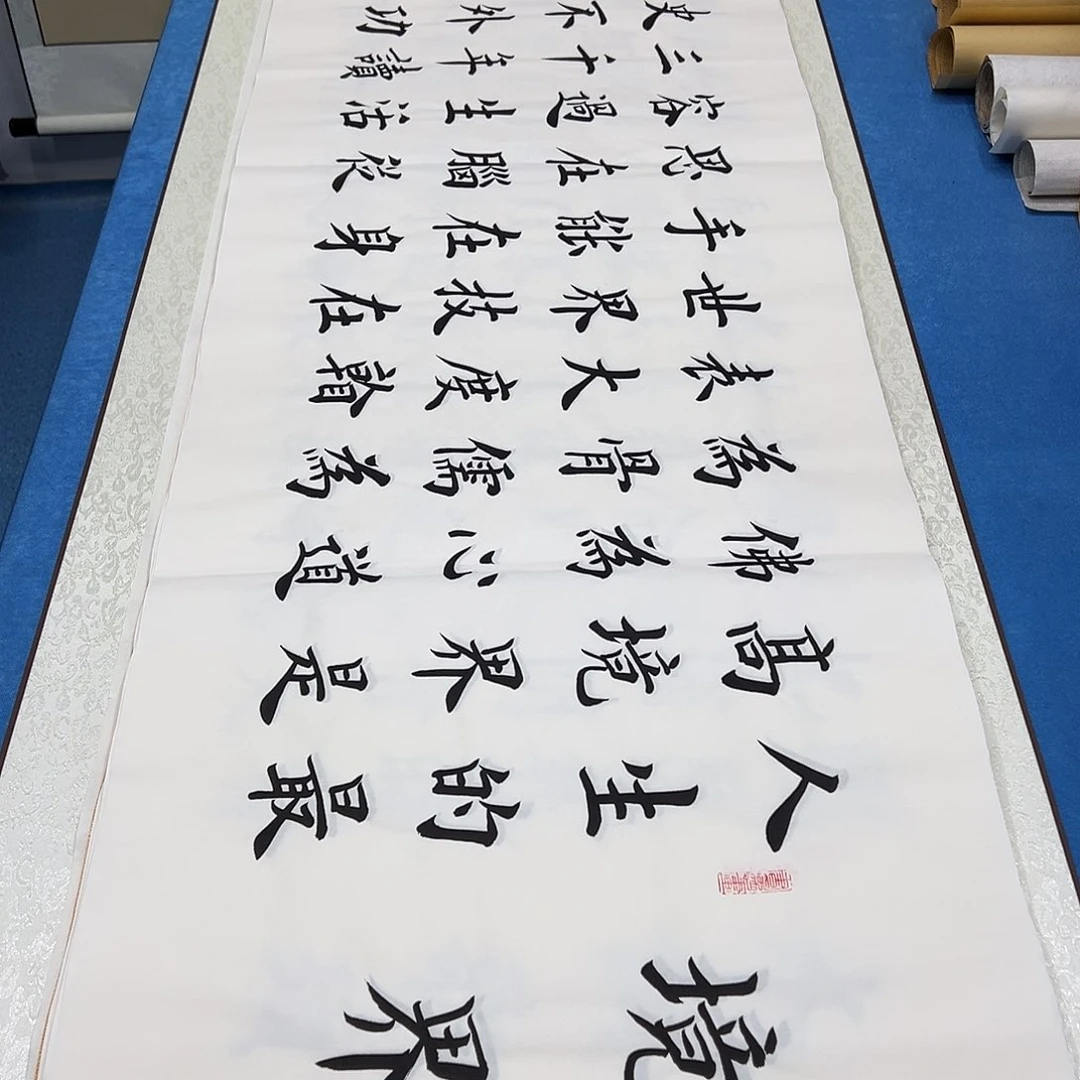 境界
人生的最
高境界是
佛為心道
為骨儒為
表大度看
世界技在
手能在身
思在腦從
容過生活
三十年讀
史不外功